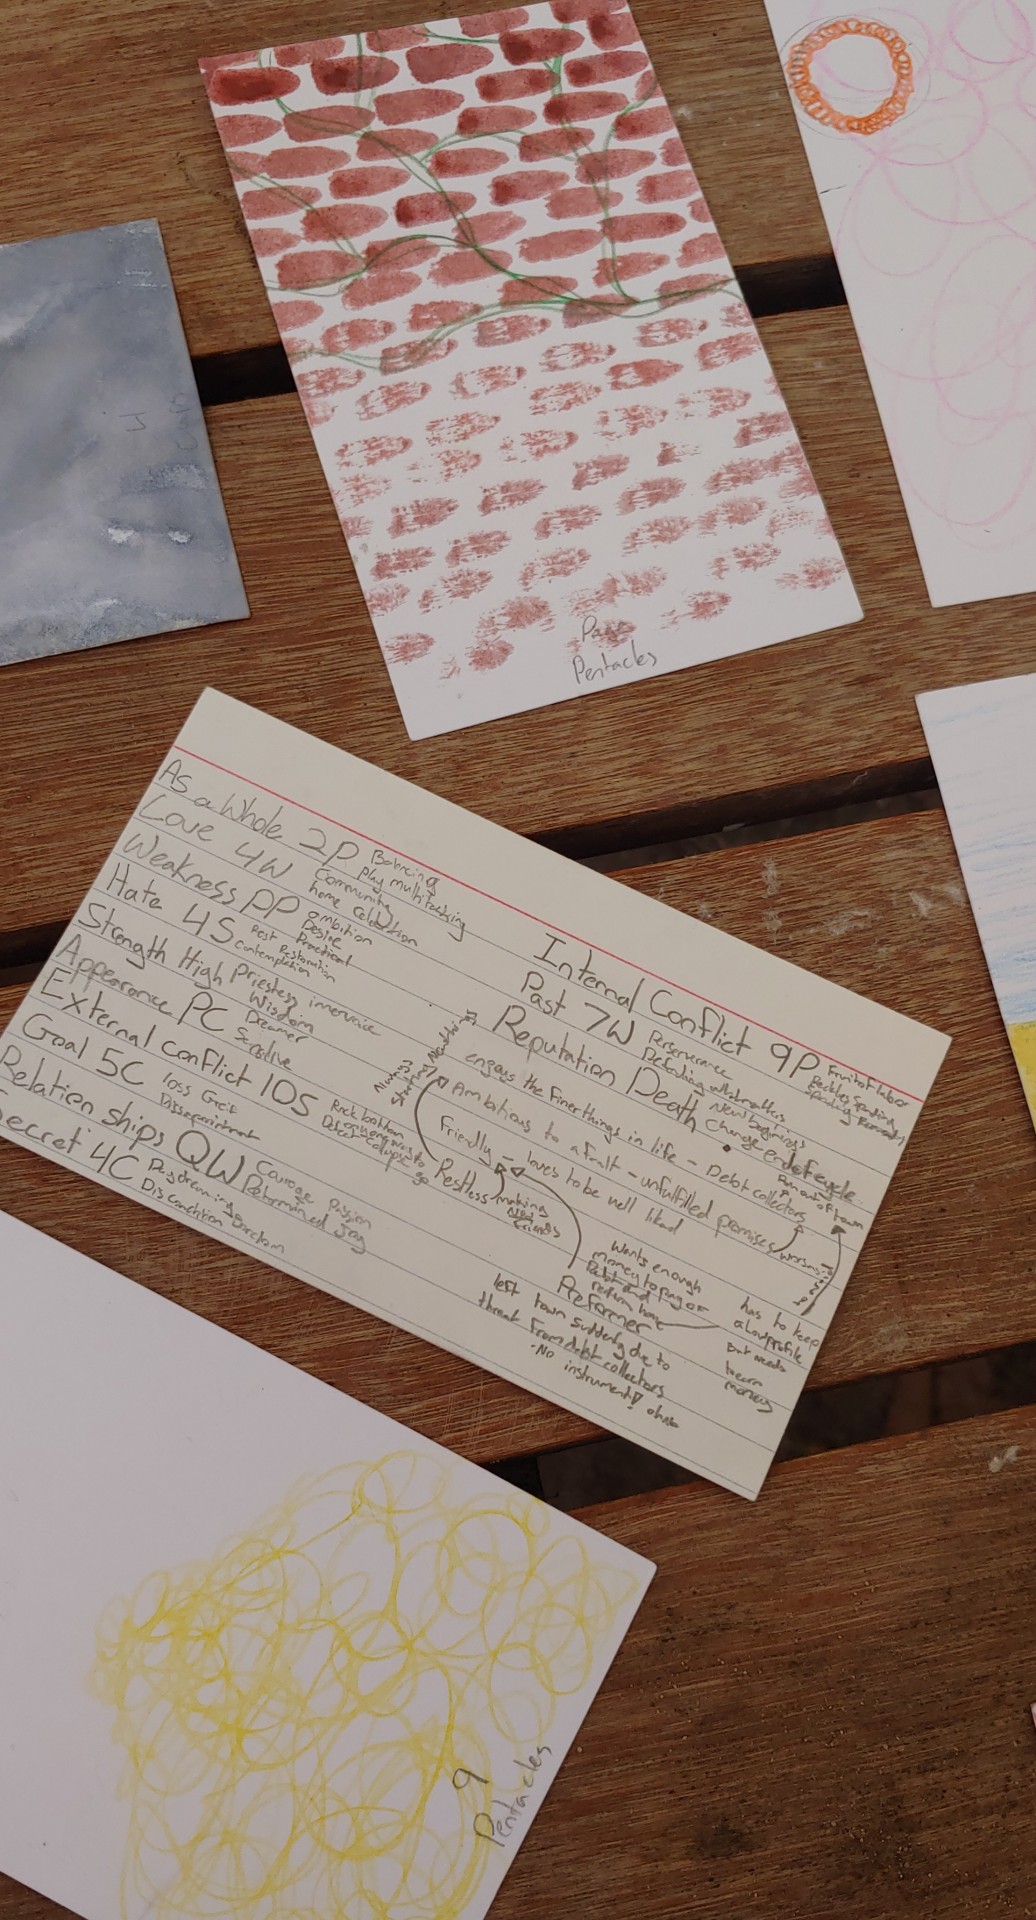 Pentacles
As a Whole 2P Balancing
play multitasking
Love 4W Community
home Celebration
Weakness PP ambition
Desire
Practical
Hate 4S Rest Restoration
contemplation
Strength High Priestess
Wisdom
Appearance PC Dreamer
Sensitive
External conflict 10S Rock bottom
Goal 5C loss Greif
Dissapointment
Relationships QW Courage passion
Determined joy
Secret 4C Day dreaming
Internal Conflict 9P Fruit of labor
Reckless Spending
Past 7W Perserverance
Defending what matters
Reputation Death New beginnings
Change end of cycle
enjoys the finer things in life - Debt collectors
Run out
of town
Ambitious to a fault - unfulfilled promises
Friendly - loves to be well liked
Restless
Always
Starting New things
making
New
friends
Wants enough
money to pay of
Debt and
return home
Performer
has to keep
a low profile
But needs
money
left town suddenly due to
threat from debt collectors
-No instrument!
9
Pentacles